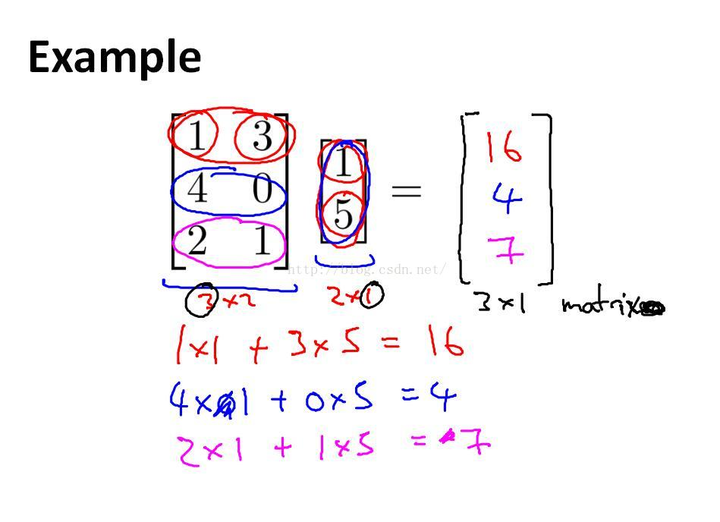 Example
1 3 1 16
4 0 = 4
2 1 5 7
http://blog.csdn.net/
3×2 2×1 3×1 matrix
1×1 + 3×5 = 16
4×1 + 0×5 = 4
2×1 + 1×5 = 7